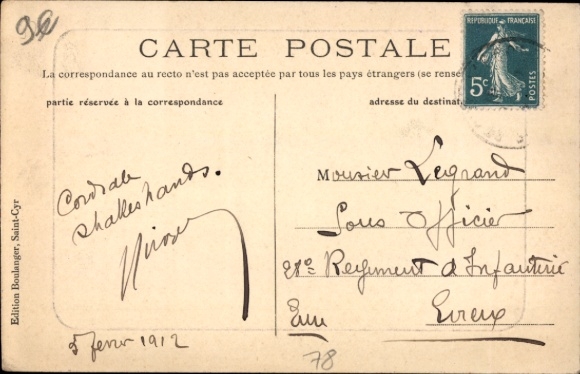 90
CARTE POSTALE
La correspondance au recto n'est pas acceptée par tous les pays étrangers (se rense
partie réservée à la correspondance
adresse du destinat
REPUBLIQUE FRANÇAISE
5c
POSTES
Cordiale
shakeshands.
5 fevrier 1912
Monsieur Legrand
Sous Officier
28e Regiment d'Infanterie
Eure Evreux
78
Edition Boulanger, Saint-Cyr